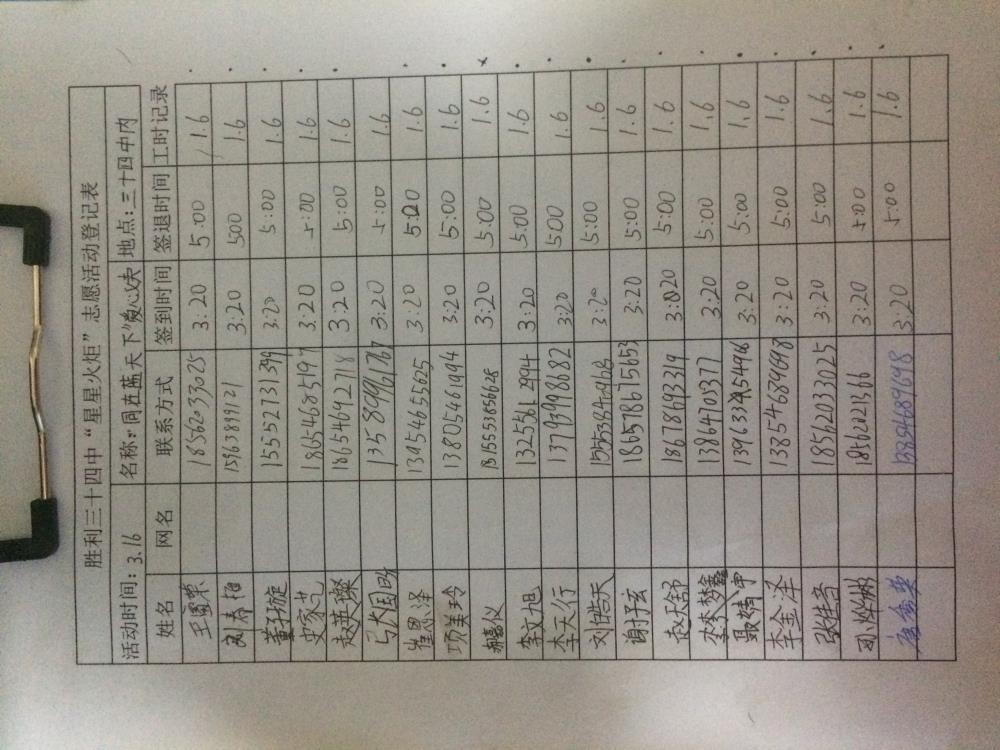 胜利三十四中“星星火炬”志愿活动登记表
活动时间：3.16 名称：“同在蓝天下”爱心义卖 地点：三十四中内
姓名 网名 联系方式 签到时间 签退时间 工时记录
王国荣 18562033025 3:20 5:00 1.6
3:20 500 1.6
董子旋 15552731399 3:20 5:00 1.6
史家艺 18054685197 3:20 5:00 1.6
赵英璨 18654642718 3:20 5:00 1.6
13589996767 3:20 5:00 1.6
崔恩泽 13954655625 3:20 5:00 1.6
项美玲 13805461994 3:20 5:00 1.6
郝嘉仪 3:20 5:00 1.6
李文旭 3:20 5:00 1.6
李天行 13793998682 3:20 500 1.6
刘浩天 3:20 5:00 1.6
谢子玄 186578675653 3:20 5:00 1.6
赵天舒 18678693319 5:00 1.6
李梦鑫 13864705377 3:20 5:00 1.6
聂婧宇 3:20 5:00 1.6
李金泽 13854689698 3:20 5:00 1.6
张胜男 18562033025 3:20 5:00 1.6
18562021366 3:20 5:00 1.6
13854689698 3:20 5:00 1.6